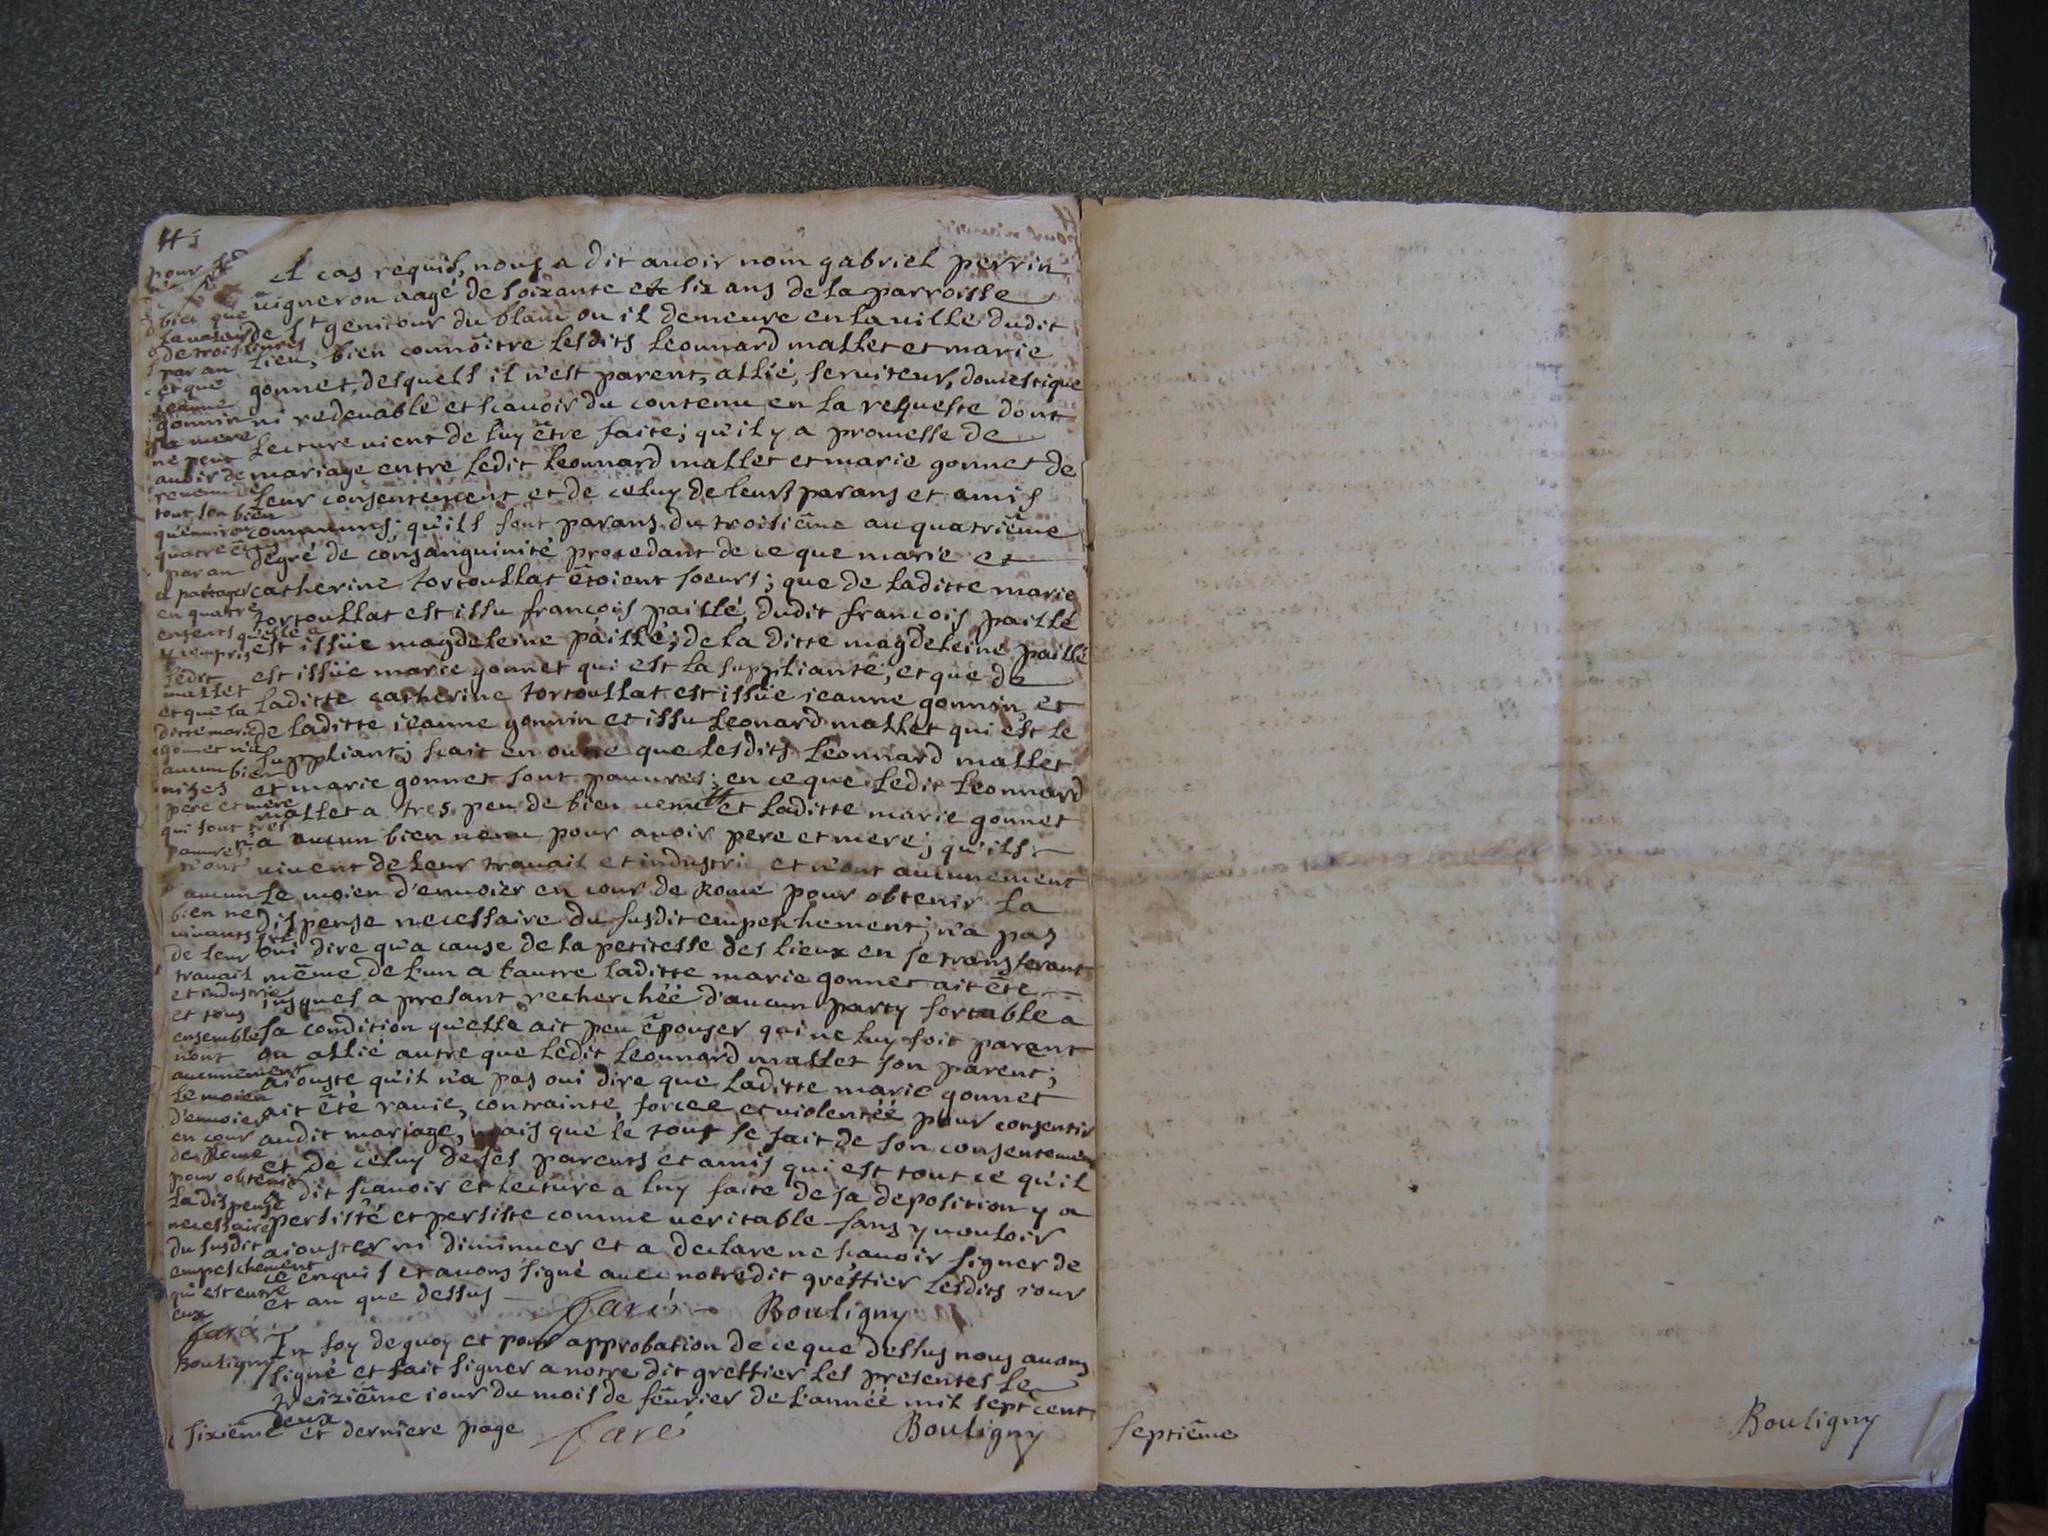 et cas requis, nous a dit avoir nom gabriel perrin
vigneron aagé de soixante et six ans de la parroisse
de St genitour du blanc ou il demeure en la ville dudit
lieu, bien connoitre lesdits Leonnard mallet et marie
gonnet, desquels il n'est parent, allié, serviteur, domestique
ni redevable et scavoir du contenu en la requeste dont
lecture vient de luy être faite; qu'il y a promesse de
mariage entre ledit Leonnard mallet et marie gonnet de
leur consentement et de celuy de leurs parans et amis
communs; qu'ils sont parans du troisième au quatrième
degré de consanguinité procedant de ce que marie et
catherine tortoullat étoient soeurs; que de laditte marie
tortoullat est issu françois paillé, dudit françois paillé
est issüe magdeleine paillé; de la ditte magdeleine paillé
est issüe marie gonnet qui est la suppliante; et que de
laditte catherine tortoullat est issüe jeanne gonnin et
de laditte jeanne gonnin et issu Leonard mallet qui est le
suppliant; scait en outre que lesdits Leonnard mallet
et marie gonnet sont pauvres; en ce que ledit Leonnard
mallet a tres peu de bien venu # et laditte marie gonnet
n'a aucun bien venu pour avoir pere et mere; qu'ils
vivent de leur travail et industrie et n'ont aucunement
le moien d'envoier en cour de Rome pour obtenir la
dispense necessaire du susdit empeschement; n'a pas
oui dire qu'a cause de la petitesse des lieux en se transferant
même de l'un a l'autre laditte marie gonnet ait été
jusques a presant recherchéé d'aucun party sortable a
sa condition qu'elle ait peu épouser qui ne luy soit parent
ou allié autre que ledit Leonnard mallet son parent;
aiouste qu'il n'a pas oui dire que laditte marie gonnet
ait été ravie, contrainte, forcee et violentéé pour consentir
audit mariage, mais que le tout se fait de son consentement
et de celuy de ses parents et amis qui est tout ce qu'il
a dit scavoir et lecture a luy faite de sa deposition y a
persisté et persiste comme veritable sans y vouloir
aiouster ni diminuer et a declare ne scavoir signer de
ce enquis et avons signé avec notredit greffier lesdits jour
et an que dessus
faré Bouligny
En foy de quoy et pour approbation de ce que dessus nous avons
signé et fait signer a notre dit greffier les presentes le
treizième jour du mois de février de l'année mil sept cent
deux
sixième et derniere page faré Bouligny
#
pour
bien que
la valeur
de trois livres
par an
et que
jeanne
gonnin
sa mere
ne peut
avoir de
revenu de
tout son bien
qu'environ
quatre
par an
a partager
en quatre
enfants qu'elle a
y compris
ledit
mallet
et que la
ditte marie
gonnet n'a
aucun bien
ni ses
pere et mere
qui sont tres
pauvres
n'ont
aucun
bien ne
vivants que
de leur
travail
et industrie
et tous
ensemble
n'ont
aucunement
le moien
d'envoier
en cour
de Rome
pour obtenir
la dispense
necessaire
du susdit
empeschement
qui est entre
eux
faré
Bouligny
septième
Bouligny